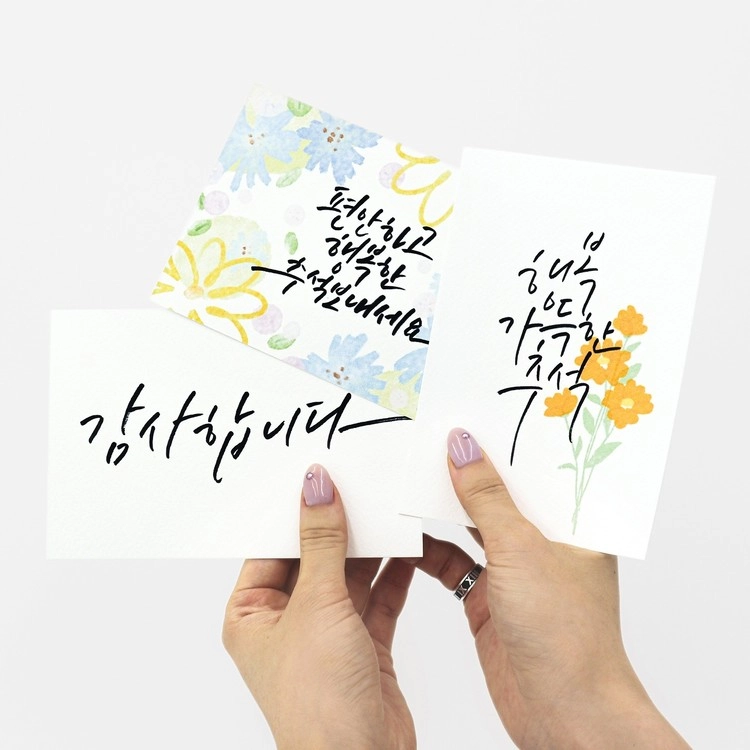 편안하고
행복한
추석보내세요
행복
가득한
추석
감사합니다